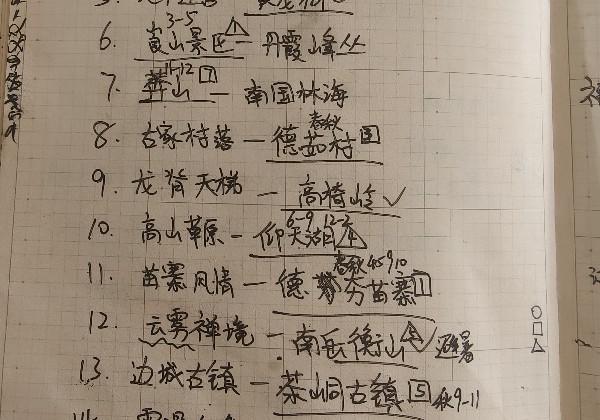 3-5
6. 莨山景区 1 丹霞峰丛
11-12 7
7. 莽山 — 南国林海
春秋
8. 古家村落 — 德茹村 3
9. 龙脊天梯 — 高椅岭 ✓
6-9 12-2
10. 高山草原 — 仰天湖 4
春秋 4 5 9 10
11. 苗寨风情 — 德夯苗寨 1
12. 云雾禅境 — 南岳衡山 避暑
13. 边城古镇 — 茶峒古镇 5 秋9-11
○
□
△